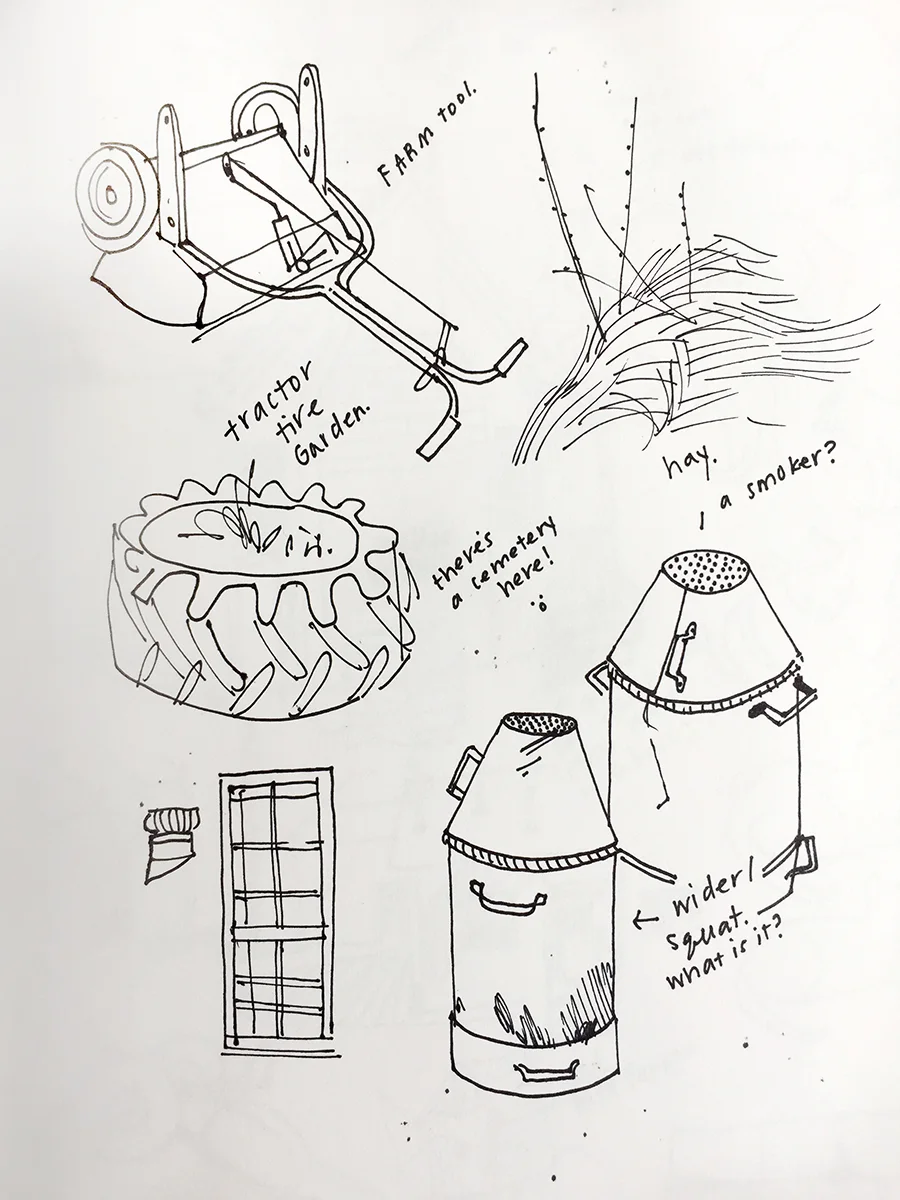 FARM tool.
tractor
tire
Garden.
hay.
a smoker?
there's
a cemetery
here!
wider/
squat.
what is it?